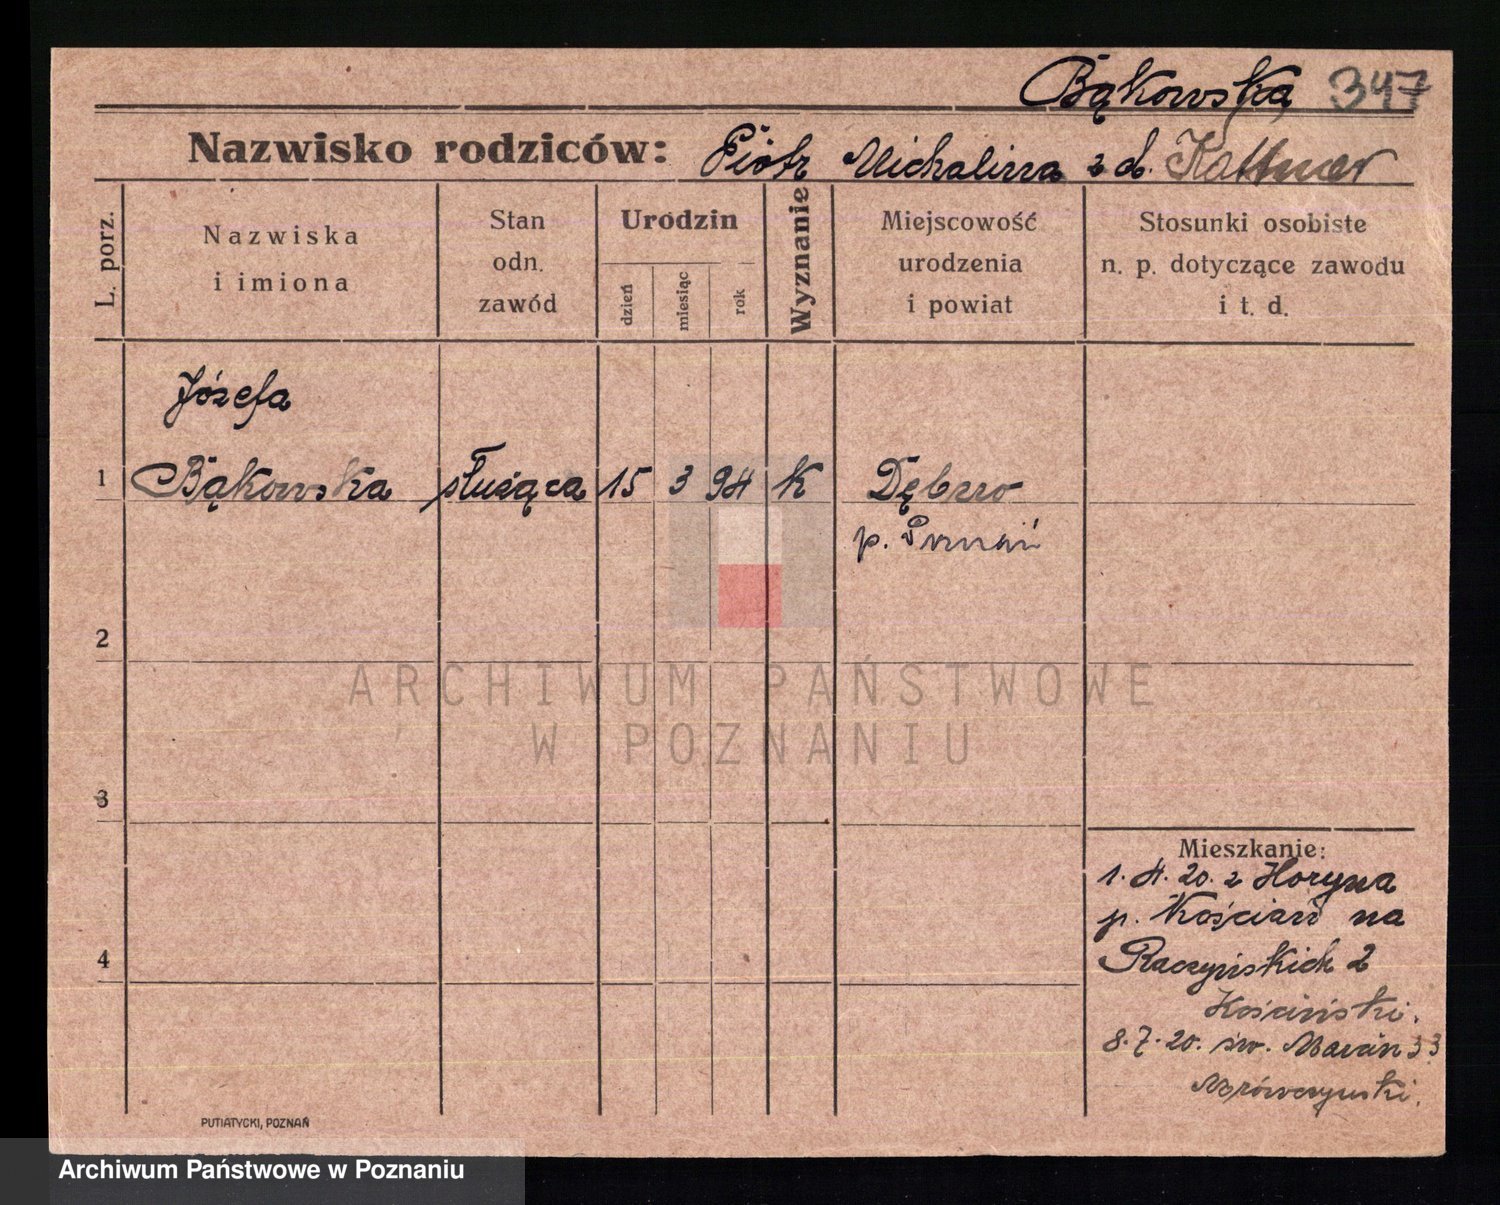 Bąkowska 347
Nazwisko rodziców: Piotr Michalina z d. Kattner
L. porz.
Nazwiska
i imiona
Stan
odn.
zawód
Urodzin
dzień
miesiąc
rok
Wyznanie
Miejscowość
urodzenia
i powiat
Stosunki osobiste
n. p. dotyczące zawodu
i t. d.
Józefa
1 Bąkowska służąca 15 3 94 k
p. Poznań
2
ARCHIWUM PAŃSTWOWE
W POZNANIU
3
Mieszkanie:
1. 4. 20. z Horyna
p. Kościan na
4 Raczyńskich 2
Kościński.
8. 7. 20. św. Marcin 33
Mrówczyński.
PUTIATYCKI, POZNAŃ
Archiwum Państwowe w Poznaniu